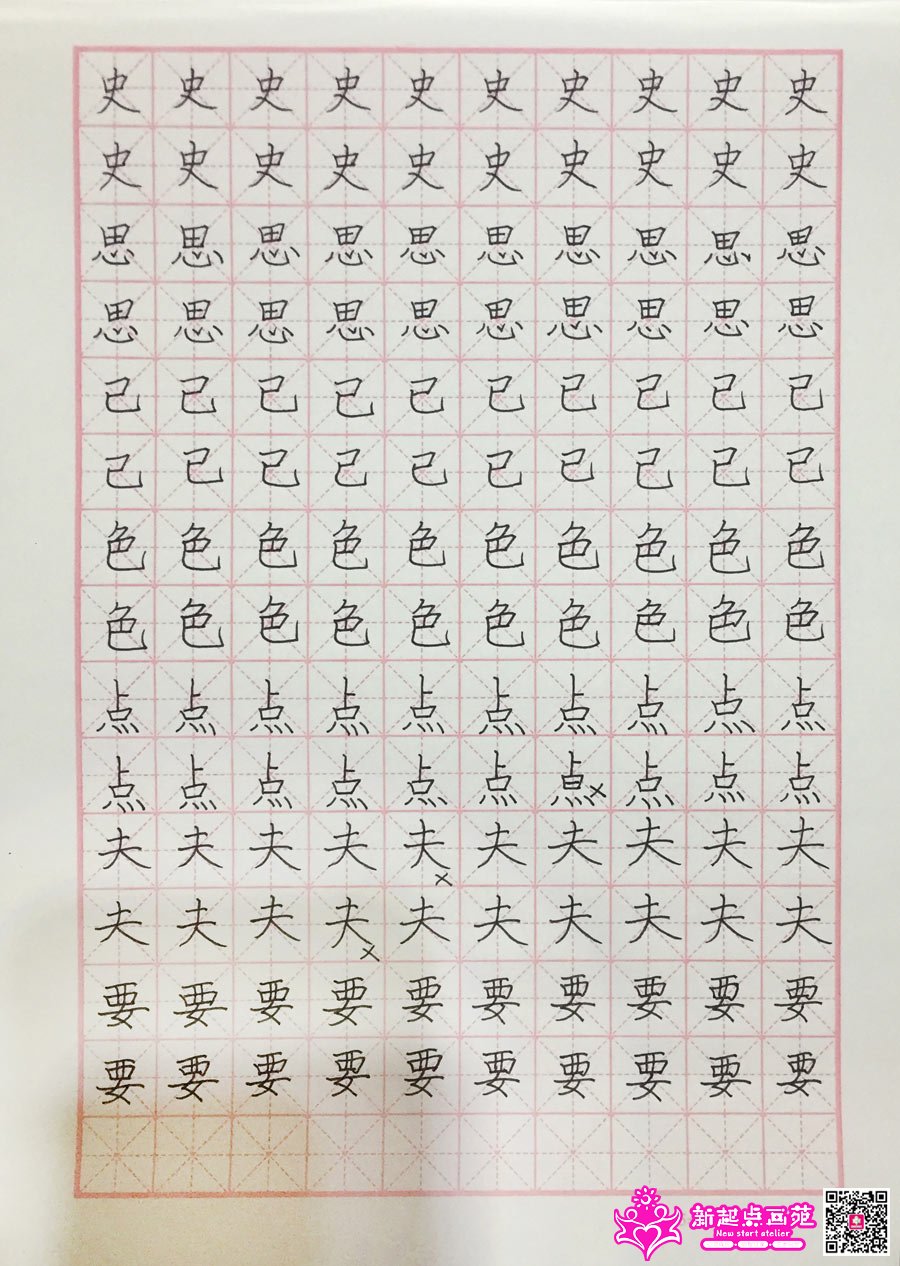 史史史史史史史史史史
史史史史史史史史史史
思思思思思思思思思思
思思思思思思思思思思
己己己己己己己己己己
己己己己己己己己己己
色色色色色色色色色色
色色色色色色色色色色
点点点点点点点点点点
点点点点点点点点点点
夫夫夫夫夫夫夫夫夫夫
夫夫夫夫夫夫夫夫夫夫
要要要要要要要要要要
要要要要要要要要要要
新起点画苑
New start atelier